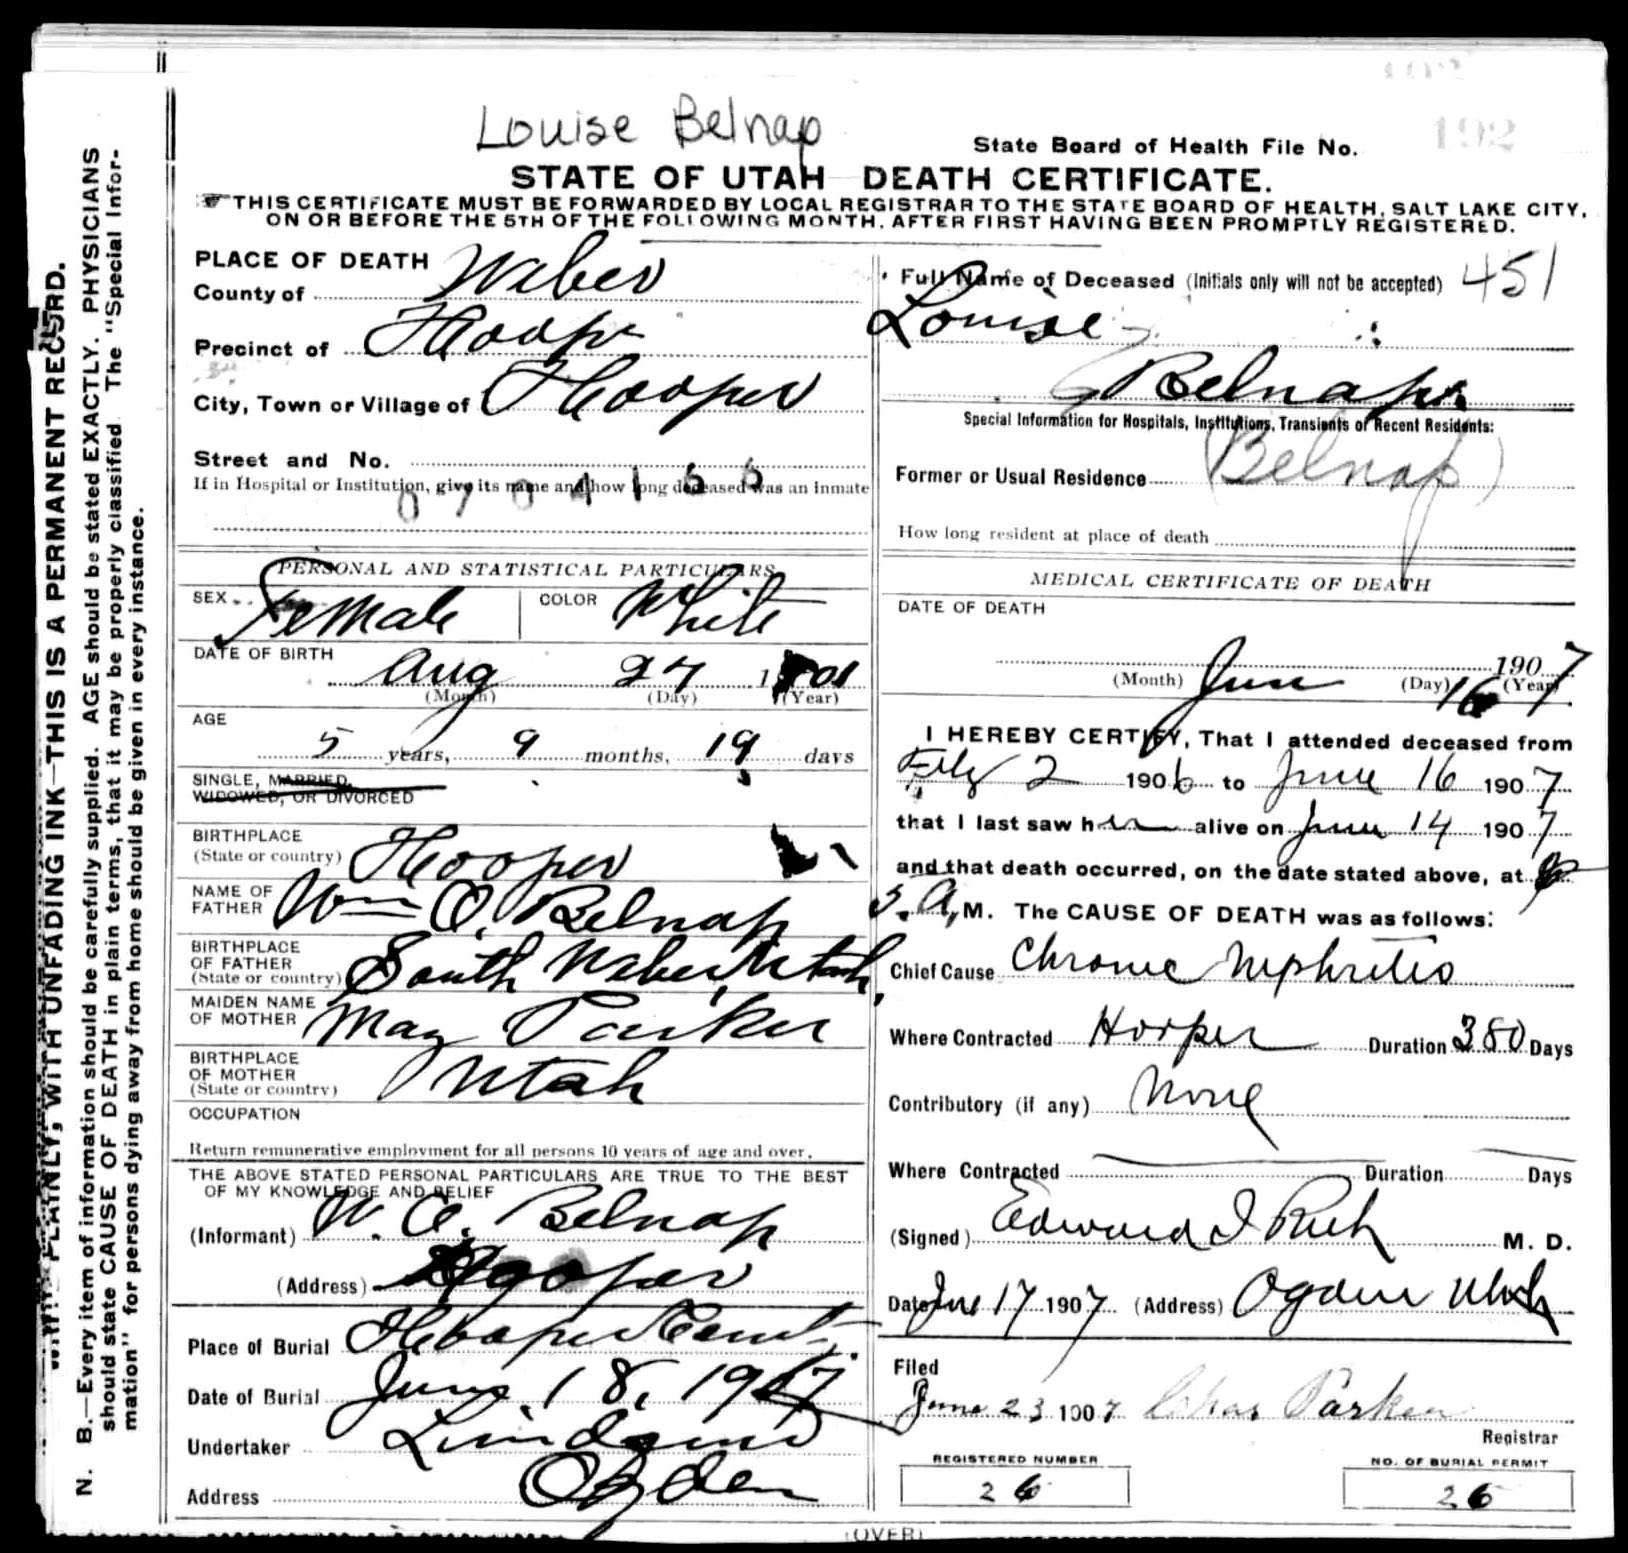 192
Louise Belnap
State Board of Health File No. 192
STATE OF UTAH DEATH CERTIFICATE.
THIS CERTIFICATE MUST BE FORWARDED BY LOCAL REGISTRAR TO THE STATE BOARD OF HEALTH, SALT LAKE CITY,
ON OR BEFORE THE 5TH OF THE FOLLOWING MONTH, AFTER FIRST HAVING BEEN PROMPTLY REGISTERED.
PLACE OF DEATH
County of Weber
Precinct of Hooper
City, Town or Village of Hooper
Street and No.
If in Hospital or Institution, give its name and how long deceased was an inmate
PERSONAL AND STATISTICAL PARTICULARS
SEX Female COLOR White
DATE OF BIRTH
Aug 27 1901
(Month) (Day) (Year)
AGE
5 years, 9 months, 19 days
SINGLE, MARRIED,
WIDOWED, OR DIVORCED
BIRTHPLACE
(State or country) Hooper
NAME OF
FATHER Wm O. Belnap
BIRTHPLACE
OF FATHER
(State or country) South Weber, Utah,
MAIDEN NAME
OF MOTHER May Parker
BIRTHPLACE
OF MOTHER
(State or country) Utah
OCCUPATION
Return remunerative employment for all persons 10 years of age and over.
THE ABOVE STATED PERSONAL PARTICULARS ARE TRUE TO THE BEST
OF MY KNOWLEDGE AND BELIEF
(Informant) W. O. Belnap
(Address) Hooper
Place of Burial Hooper Cemt.
Date of Burial June 18, 1907
Undertaker
Address Ogden
Full Name of Deceased (Initials only will not be accepted) 451
Louise
Belnap
Special Information for Hospitals, Institutions, Transients or Recent Residents:
Former or Usual Residence (Belnap)
How long resident at place of death
MEDICAL CERTIFICATE OF DEATH
DATE OF DEATH
1907
(Month) June (Day) 16 (Year) 7
I HEREBY CERTIFY, That I attended deceased from
2 1906 to June 16 1907
that I last saw her alive on June 14 1907
and that death occurred, on the date stated above, at
A, M. The CAUSE OF DEATH was as follows:
Chief Cause Chronic Nephritis
Where Contracted Hooper Duration 380 Days
Contributory (if any) None
Where Contracted Duration Days
(Signed) Edward I Rich M. D.
Date June 17 1907 (Address) Ogden Utah
Filed
June 23 1907 Chas Parker
Registrar
REGISTERED NUMBER
26
NO. OF BURIAL PERMIT
26
(OVER)
WRITE PLAINLY, WITH UNFADING INK—THIS IS A PERMANENT RECORD.
N. B.—Every item of information should be carefully supplied. AGE should be stated EXACTLY. PHYSICIANS
should state CAUSE OF DEATH in plain terms, that it may be properly classified. The "Special Infor-
mation" for persons dying away from home should be given in every instance.